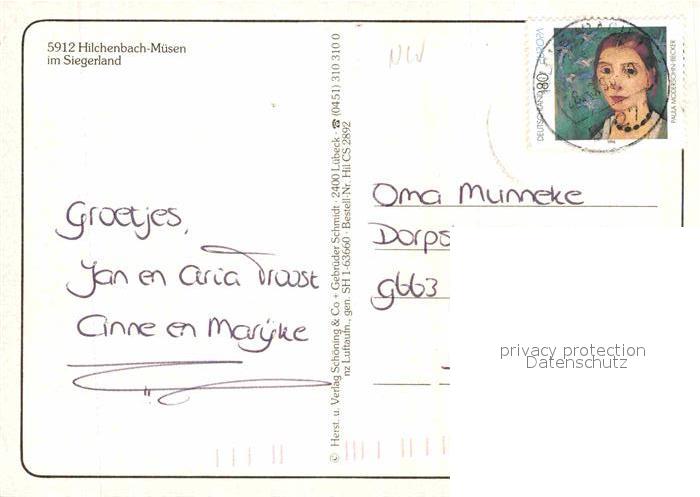 5912 Hilchenbach-Müsen
im Siegerland
Groetjes,
Jan en Aria Troost
Anne en Marijke
© Herst. u. Verlag Schöning & Co + Gebrüder Schmidt · 2400 Lübeck · ☎ (0451) 310 310 0
nz Luftaufn., gen. SH 1-63660 · Bestell-Nr. Hil CS 2892
NLV
DEUTSCHLAND
EUROPA
80
PAULA MODERSOHN-BECKER
Oma Munneke
Dorps
9663
privacy protection
Datenschutz